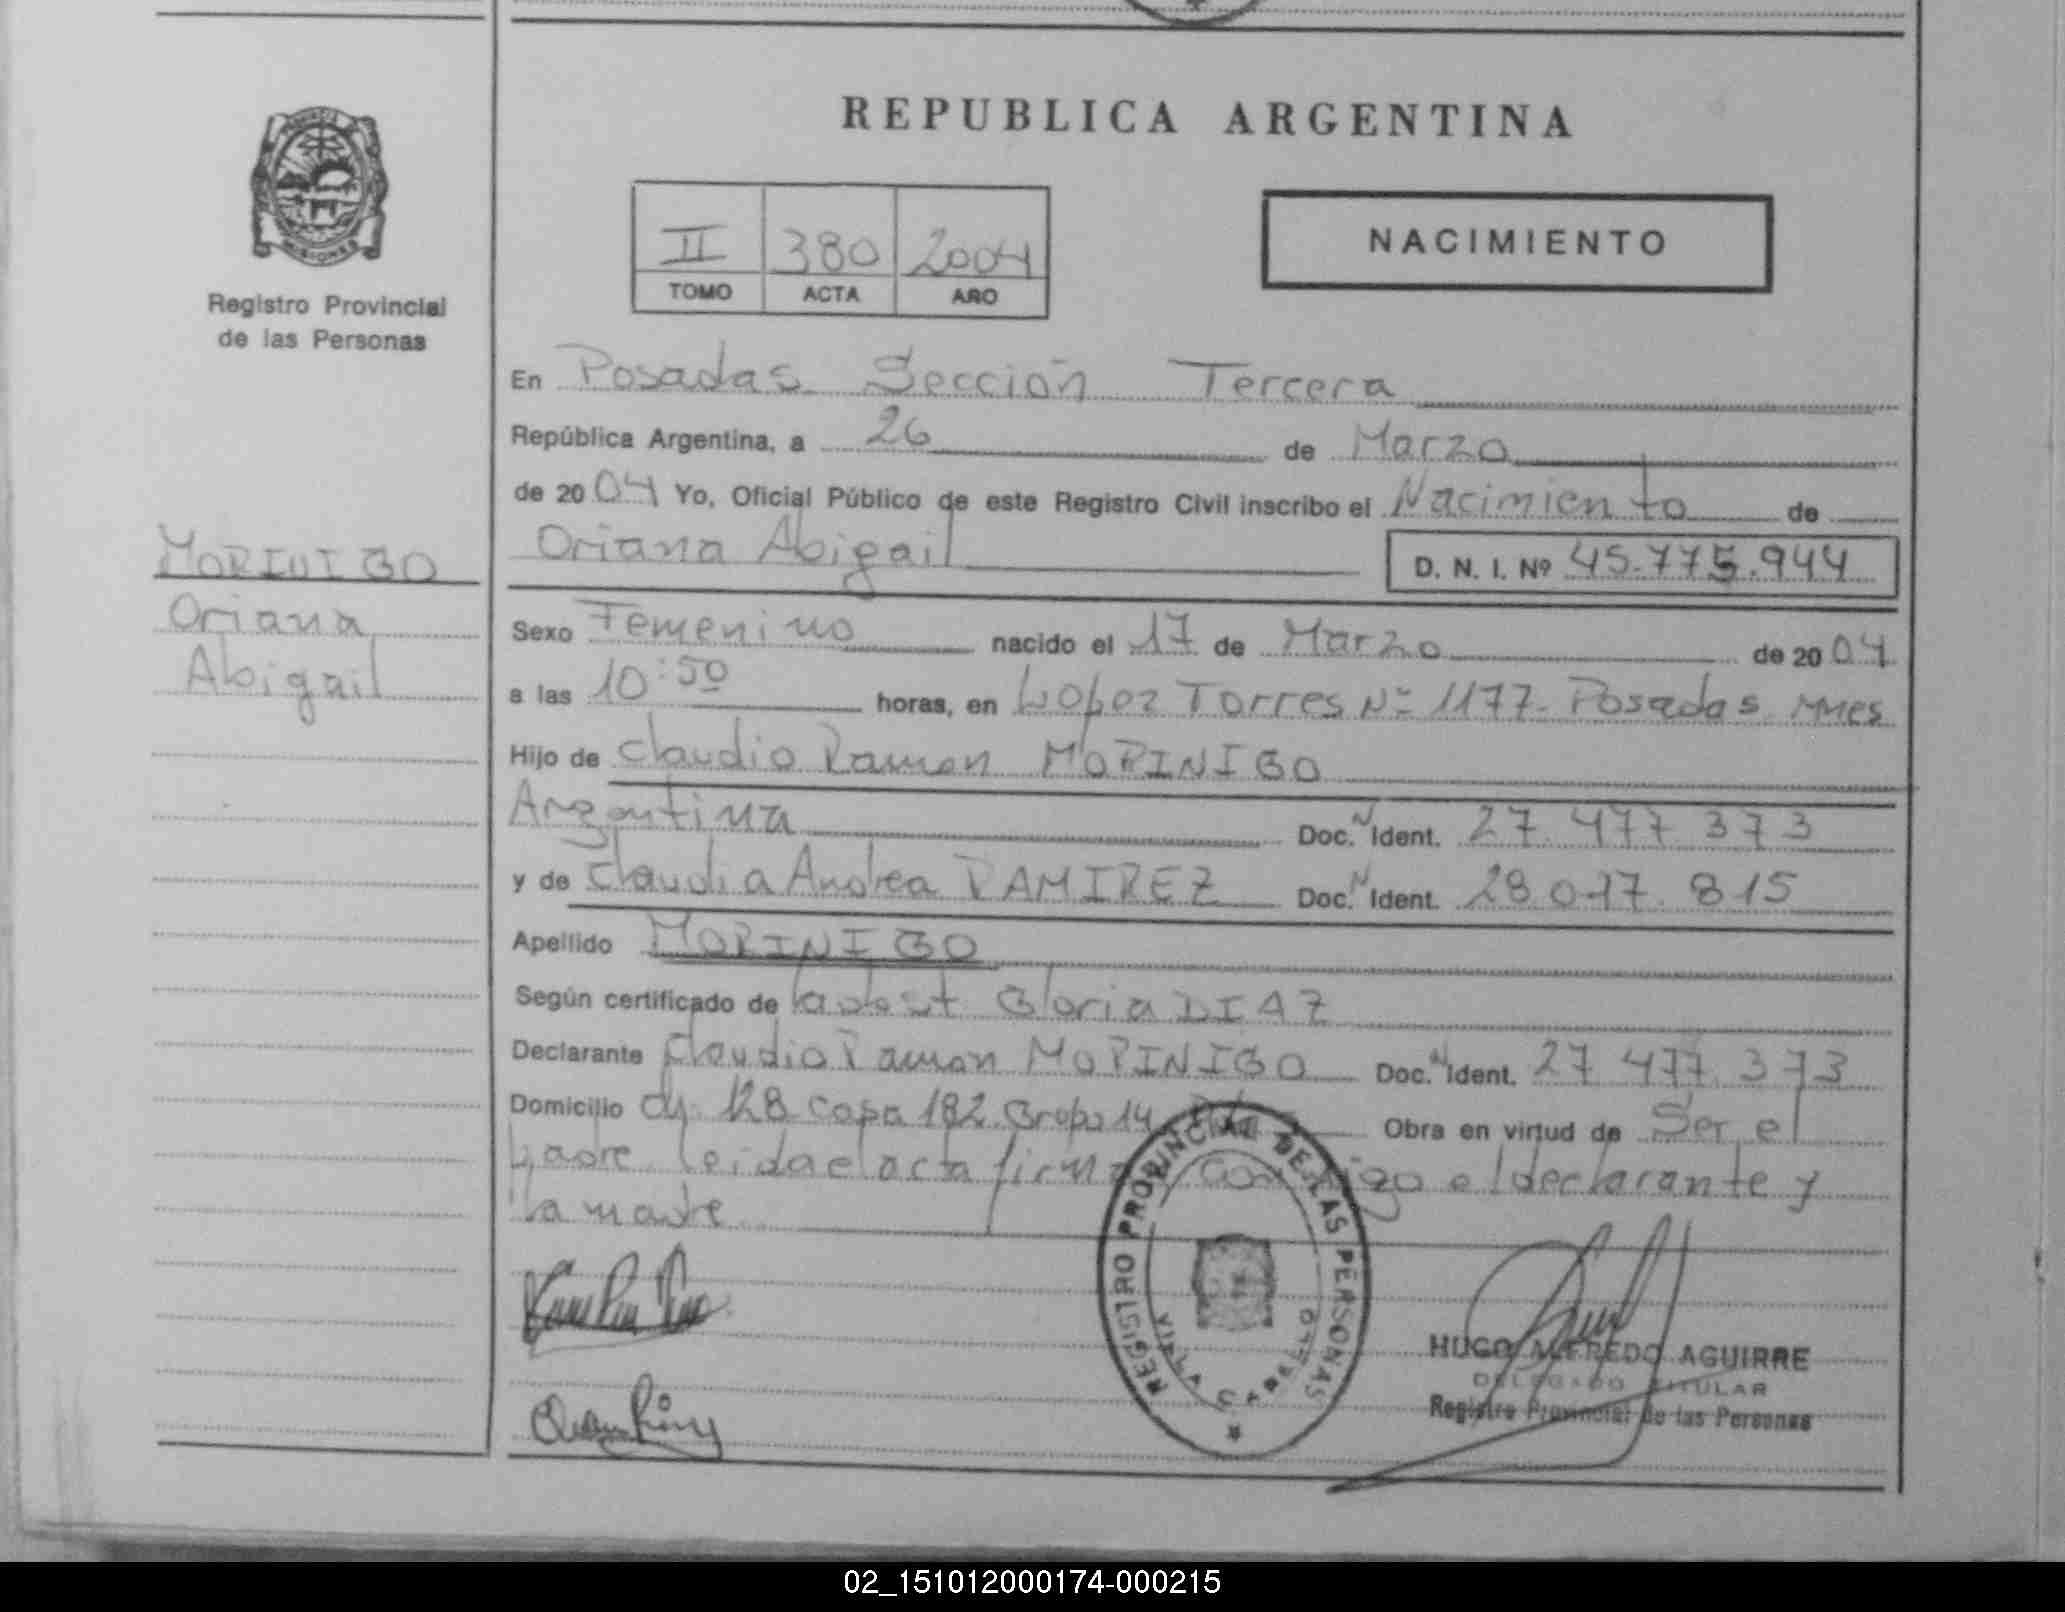 REPUBLICA ARGENTINA
II 380 2004
TOMO ACTA AÑO
NACIMIENTO
MISIONES
Registro Provincial
de las Personas
MORINIGO
Oriana
Abigail
En Posadas Sección Tercera
República Argentina, a 26 de Marzo
de 2004 Yo, Oficial Público de este Registro Civil inscribo el Nacimiento de
Oriana Abigail D. N. I. Nº 45.775.944
Sexo Femenino nacido el 17 de Marzo de 2004
a las 10:50 horas, en López Torres Nº 1177- Posadas Mnes
Hijo de Claudio Ramon MORINIGO
Argentina Doc. Ident. 27.477.373
y de Claudia Andrea RAMIREZ Doc. Ident. 28.017.815
Apellido MORINIGO
Según certificado de Gloria DIAZ
Declarante Claudio Ramon MORINIGO Doc. Ident. 27.477.373
Domicilio ch. 128 casa 182 Grupo 14 Obra en virtud de Ser el
padre leida el acta firma conmigo el declarante y
la madre
REGISTRO PROVINCIAL DE LAS PERSONAS
VILLA CABELLO
HUGO ALFREDO AGUIRRE
DELEGADO TITULAR
Registro Provincial de las Personas
02_151012000174-000215